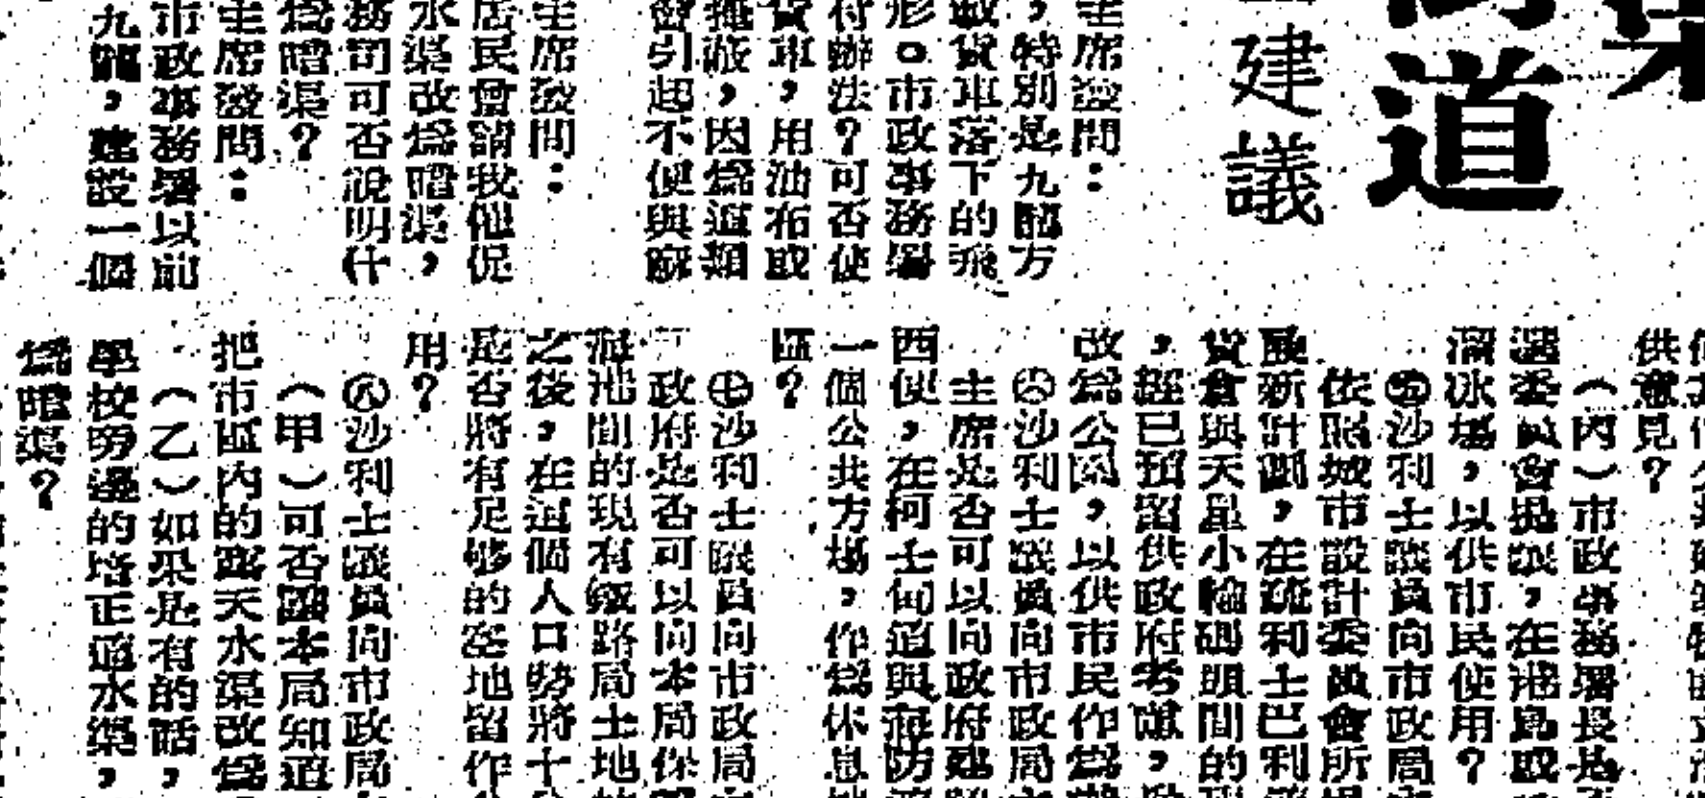 道
建議
主席發問：
，特別是九龍方
貨車落下的飛
形。市政事務署
付辦法？可否使
貨車，用油布或
掩蔽，因爲這類
會引起不便與
主席發問：
居民曾請我他促
水渠改爲暗渠，
務司可否說明什
爲暗渠？
主席發問：
市政事務署以前
九龍，建設一個
供意見？
（丙）市政事務署長是
選委員會提議，在港島或
溜冰場，以供市民使用？
㊄沙利士議員向市政局
依照城市設計委員會所
展新計劃，在疏利士巴利
貨倉與天星小輪碼頭間的
，經已預留供政府考慮，
改爲公園，以供市民作爲
㊅沙利士議員向市政局
主席是否可以向政府建
西便，在柯士甸道與海防
一個公共方場，作爲休息
區？
㊆沙利士議員向市政局
政府是否可以向本局保
間的現有鐵路局土地
之後，在這個人口勢將十
是否將有足够的空地留作
用？
㊇沙利士議員向市政局
（甲）可否讓本局知道
把市區內的露天水渠改爲
（乙）如果是有的話，
學校旁邊的培正道水渠，
爲暗渠？